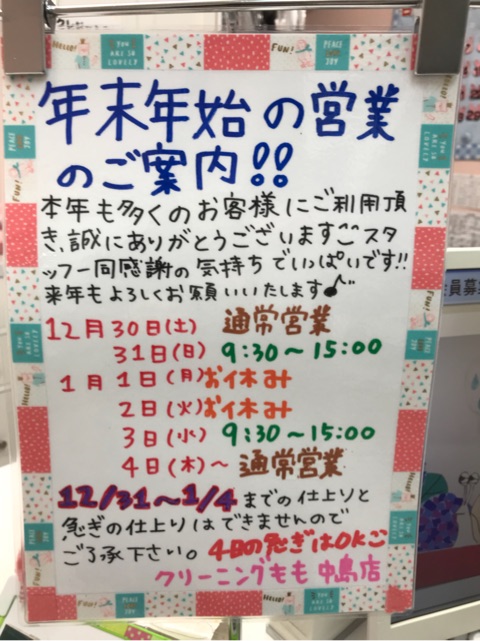 年末年始の営業
のご案内!!
本年も多くのお客様にご利用頂
き、誠にありがとうございます♡スタ
ッフ一同感謝の気持ちでいっぱいです!!
来年もよろしくお願いいたします♪
12月30日(土) 通常営業
31日(日) 9:30〜15:00
1月1日(月)お休み
2日(火)お休み
3日(水) 9:30〜15:00
4日(木)〜 通常営業
12/31〜1/4までの仕上りと
急ぎの仕上りはできませんので
ご了承下さい。4日の急ぎはOK♡
クリーニングもも 中島店
HELLO!
YOU ARE SO LOVELY
FUN!
PEACE AND JOY
会員募集